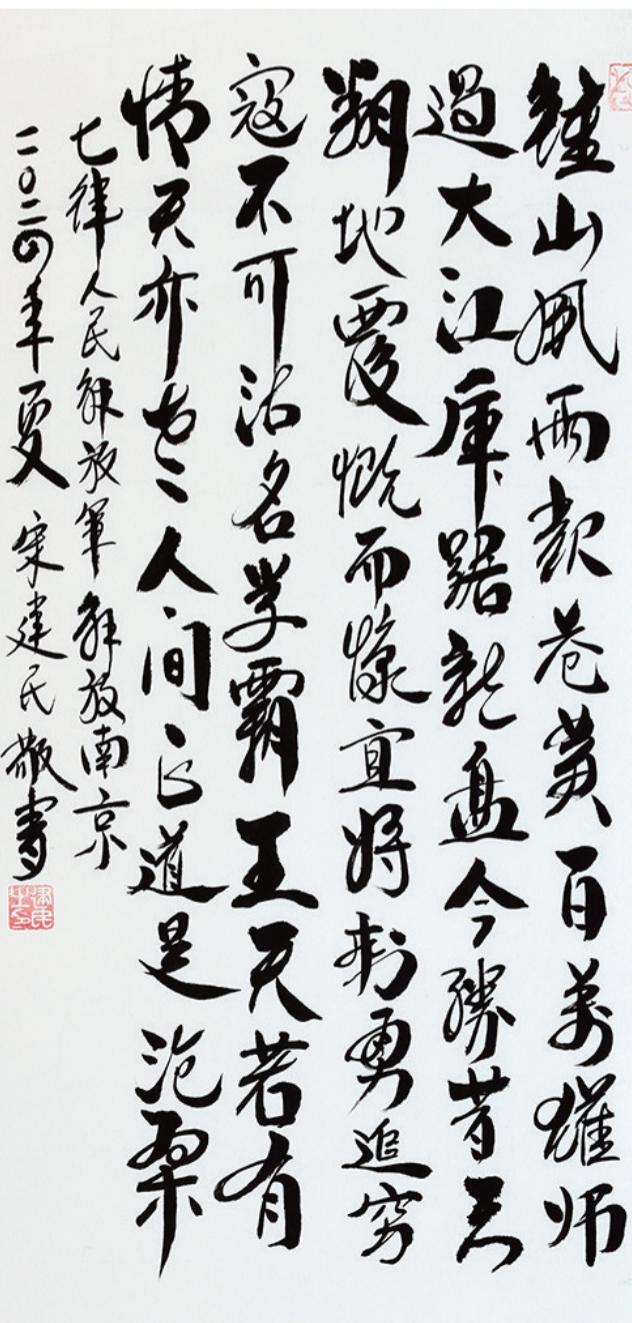 鍾山風雨起蒼黃百萬雄師
過大江虎踞龍盤今勝昔天
翻地覆慨而慷宜將剩勇追窮
寇不可沽名學霸王天若有
情天亦老人間正道是滄桑
七律人民解放軍解放南京
二〇二四年夏 宋建民敬書
建民之印